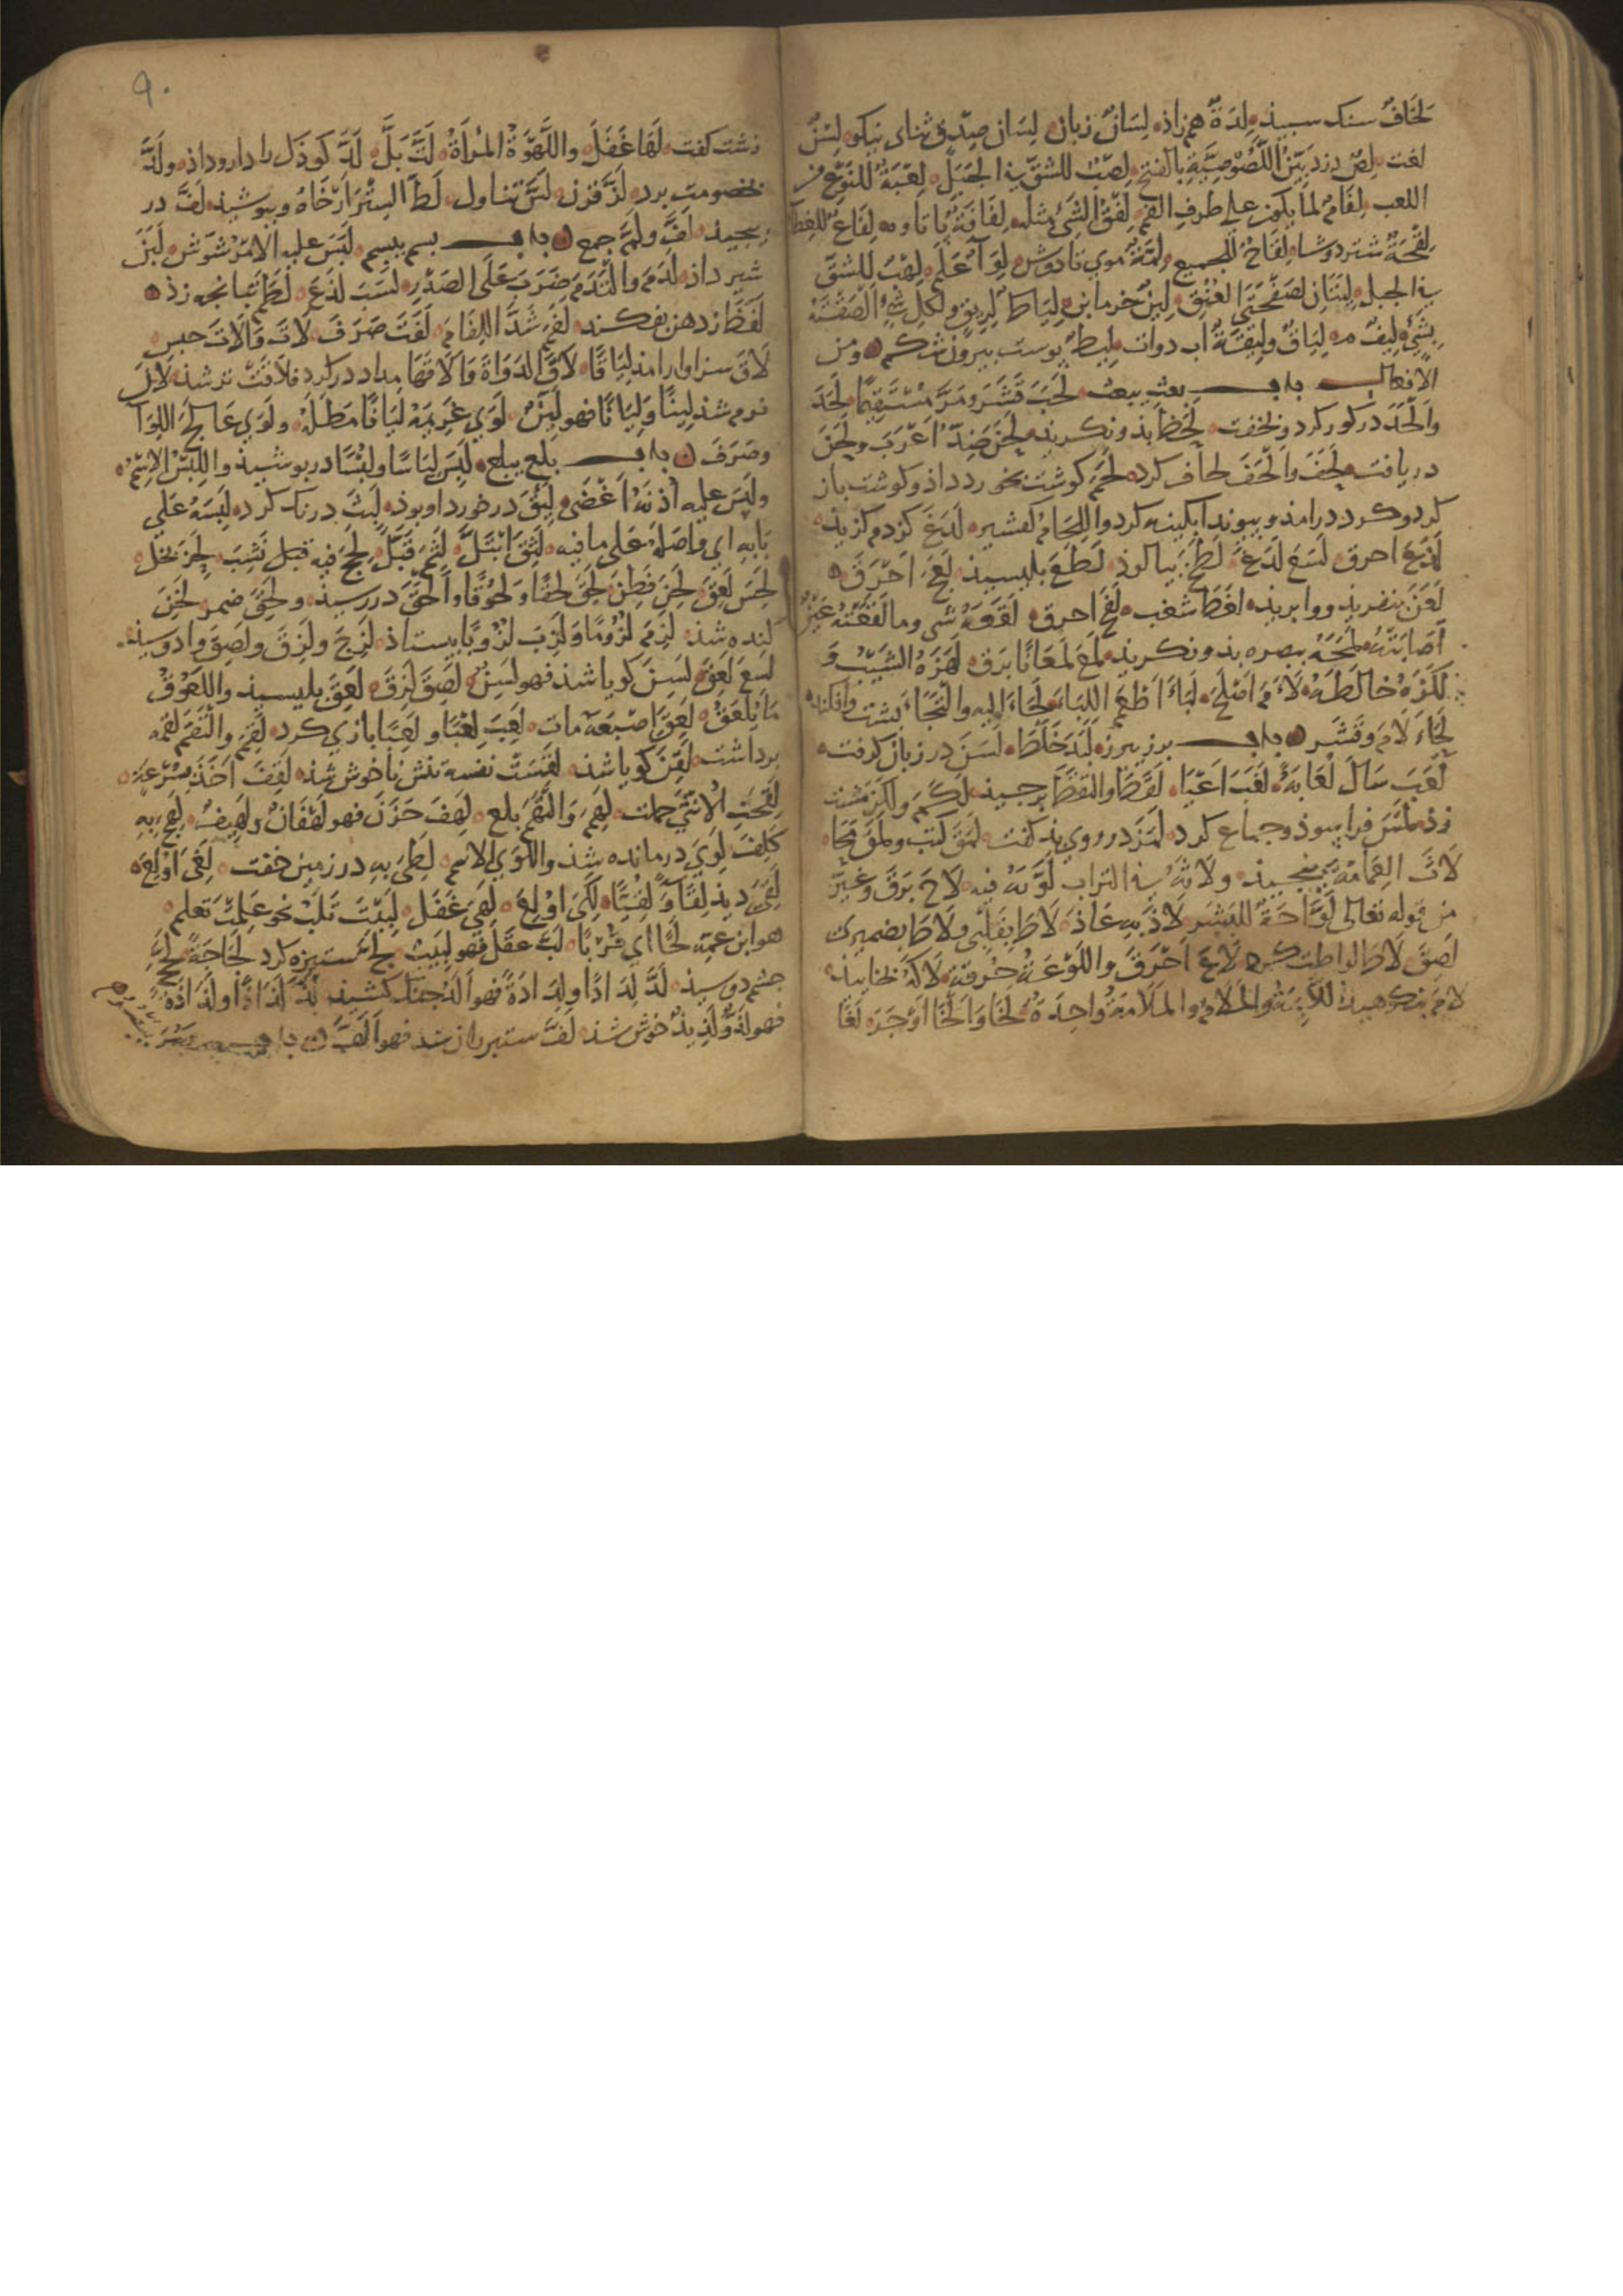 لِخَافٌ سنک سبیذ لِدَةٌ همزاذ لِسَانٌ زبان لِسَان صِدْقٍ ثنای نیکو لِسْنٌ
لغت لِصّ دزد بَیِّنُ اللَّصُوصِیَّةِ بالفتح لِصْبٌ للشقّ فی الجَبَل لِعْبَةٌ للنوع من
اللعب لِفَامٌ لما یکون علی طرف الفم لِفْقُ الشَّیْءِ مثله لِفَافَةٌ پاتاوه لِفَاعٌ للغطا
لِقْحَةٌ شتر دوشا لِقَاحٌ للجمیع لِمَّةٌ موی تا دوش لِوَآءٌ عَلَم لِهْبٌ للشقّ
فی الجبل لِیتَانِ لصَفْحَتَیِ العُنُقِ لِینٌ خرمابن لِیَاطٌ لِرِبوٍ ولکلّ شَیْءٍ اَلْصَقْتَهُ
بِشَیْءٍ لِیفٌ مه لِیَاقٌ ولِیقَةٌ اب دوات لِیطٌ پوست بیرون شکم ومن
الافعال باب بعث یبعث لَحَبَ قَشَرَ ومَرَّ مُسْتَقِیمًا لَحَدَ
واَلْحَدَ در کور کرد ولخفت لَحَظَ بذونکریذ لَحَنَ ضِدُّ اَعْرَبَ ولَحَنَ
دریافت لَحَفَ واَلْحَفَ لحاف کرد لَحَمَ کوشت بخورد داذ وکوشت باز
کرد وکرد درامذ وبیوند ابکینه کرد واللِحَامُ کفشیر لَدَغَ کزدم کزیذ
لَذَعَ احرق لَسَعَ لَدَغَ لَطَخَ بیالوذ لَطَعَ بلیسیذ لَعَجَ اَحْرَقَ
لَعَنَ بنفریذ ووابریذ لَغَطَ شغب لَفَحَ احرق لَقَعَهُ شَیءٌ وما لَقَعَتْهُ عَیْنٌ
اَصَابَتْهُ لَمَحَهُ ببصره بذونکریذ لَمَعَ لَمَعَانًا بَرَقَ لَهَزَهُ الشَّیْبُ وَ
لَکَزَهُ خَالَطَهُ لَأَمَ اَصْلَحَ لَبَأَ اَطْعَمَ اللِبَاءَ لَجَأَ اِلیه والْتَجَأَ بشت وافکند
لَحَاءَ لَامَ وقَشَرَ باب برز یبرز لَبَدَ خَلَطَ لَسَنَ در زبان کرفت
لَعَبَ سَالَ لُعَابُهُ لَغَبَ اَعْیَا لَقَطَ والتقطَ برجیذ لَکَمَ ولَکَزَ مشت
زذ لَمَسَ فرا بسوذ وجماع کرد لَمَزَ در روی بذ کفت لَمَقَ کَتَبَ ولَمَقَ مَحَا
لَاثَ العِمَامَةَ بپیجیذ ولَاثَهُ فی التراب لَوَّثَهُ فیه لَاحَ بَرَقَ وغَیَّرَ
من قوله تعالی لَوَّاحَةٌ للبَشَر لَاذَ بِهِ عَاذَ لَاطَ بِقَلْبِی ولَاطَ بضمیرک
لَصَقَ لَاطَ لواطت کرد لَاعَ اَحْرَقَ واللَّوْعَةُ حُرْقَةٌ لَاکَهُ بخایید
لَامَ بنکوهیذ للاَّئِمَةُ والمَلَامُ والمَلَامَةُ وَاحِدَةٌ لَخَا وَاَلْخَا اَوْجَرَ لَغَا
۹۰
زشت کفت لَهَا غَفَلَ واللَّهْوَةُ المَرْأَةُ لَتَّ بَلَّ لَدَّ کوذک را دارو داذ ولَدَّ
بخصومت برد لَزَّ قرن لَسَّ تناول لَطَّ السِتْرَ اَرْخَاهُ وبپوشیذ لَفَّ در
پیجیذ لَفَّ ولَمَّ جمع باب بسم یبسم لَبَسَ علیه الامرَ شَوَّشَ لَبَنَ
شیر داذ لَدَمَ والتَدَمَ ضَرَبَ عَلَی الصَدْرِ لَسَبَ لَدَغَ لَطَمَ تبانجه زذ
لَفَظَ از دهن بفکند لَفَمَ شَدَّ اللِفَامَ لَفَتَ صَرَفَ لَاتَ وَاَلَاتَ حبس
لَاقَ سزاوار امذ لِیَاقًا لَاقَ الدَوَاةَ وَاَلَاقَهَا مداد در کرد فلاقَتْ تر شذ لَانَ
نرم شذ لِینًا ولِیَانًا فهو لَیِّنٌ لَوَی غَرِیمَهُ لَیَانًا مَطَلَهُ ولَوَی عَالَجَ اللِوَآءَ
وصَرَفَ باب بلع یبلع لَبِسَ لِبَاسًا ولُبْسًا در پوشیذ واللِبْسُ الاِسْمُ
ولَبِسَ علیه اُذْنَهُ اَغْضَی لَبِقَ در خورد او بوذ لَبِثَ درنک کرد لَبِسَهُ عَلَی
مَا بِهِ ای وَاصَلَهُ عَلی ما فیه لَثِقَ اِبْتَلَّ لَثِمَ قَبَّلَ لَحِجَ فیه قیل نَشِبَ لَحِزَ بَخِلَ
لَحِسَ لَعِقَ لَحِنَ فَطِنَ لَحِقَ لَحَقًا ولُحُوقًا واَلْحَقَ در رسیذ ولَحِقَ ضمر لَخِنَ
کنده شذ لَزِمَ لُزُومًا ولَزِبَ لُزُوبًا باستاذ لَزِجَ ولَزِقَ ولَصِقَ وادوسیذ
لَسِعَ لَعِقَ لَسِنَ کویا شذ فهو لَسِنٌ لَصِقَ لَزِقَ لَعِقَ بلیسیذ واللَعُوقُ
مَا یُلْعَقُ لَعِقَ اِصْبَعَهُ مات لَعِبَ لَعْبًا ولَعِبًا بازی کرد لَقِمَ والْتَقَمَ لقمه
برداشت لَقِنَ کویا شذ لَقِسَتْ نفسه تنش ناخوش شذ لَقِفَ اَخَذَ بِسُرْعَةٍ
لَقِحَتِ الاُنْثَی حملت لَهِمَ والْتَهَمَ بلع لَهِفَ حَزِنَ فهو لَهْفَانُ ولَهِیفٌ لَهِجَ بِهِ
کَلِفَ لَوِیَ درمانده شذ واللَوَی الاسم لَطِیَ بِهِ در زمین خفت لَغِیَ اُوْلِعَ
لَقِیَ دیذ لِقَاءً ولُقْیَةً لَکِیَ اُوْلِعَ لَهِیَ غَفَلَ لَبِیْتَ تَلَبَّ نحو عَلِمْتَ تَعْلَمُ
هو ابن عمّه لَحًّا ای قُرْبًا لَبَّ عقل فهو لَبِیبٌ لَجَّ ستیزه کرد لَجَاجَةً لَحَّ
جشم دوسیذ لَدَّ لَدَادًا ولَدَادَةً فهو اَلَدُّ جنک کشیذ لَذَّ لَذَاذًا ولَذَاذَةً
فهو لَذٌّ ولَذِیذٌ خوش شذ لَفَّ ستبر ران شذ فهو اَلَفُّ باب